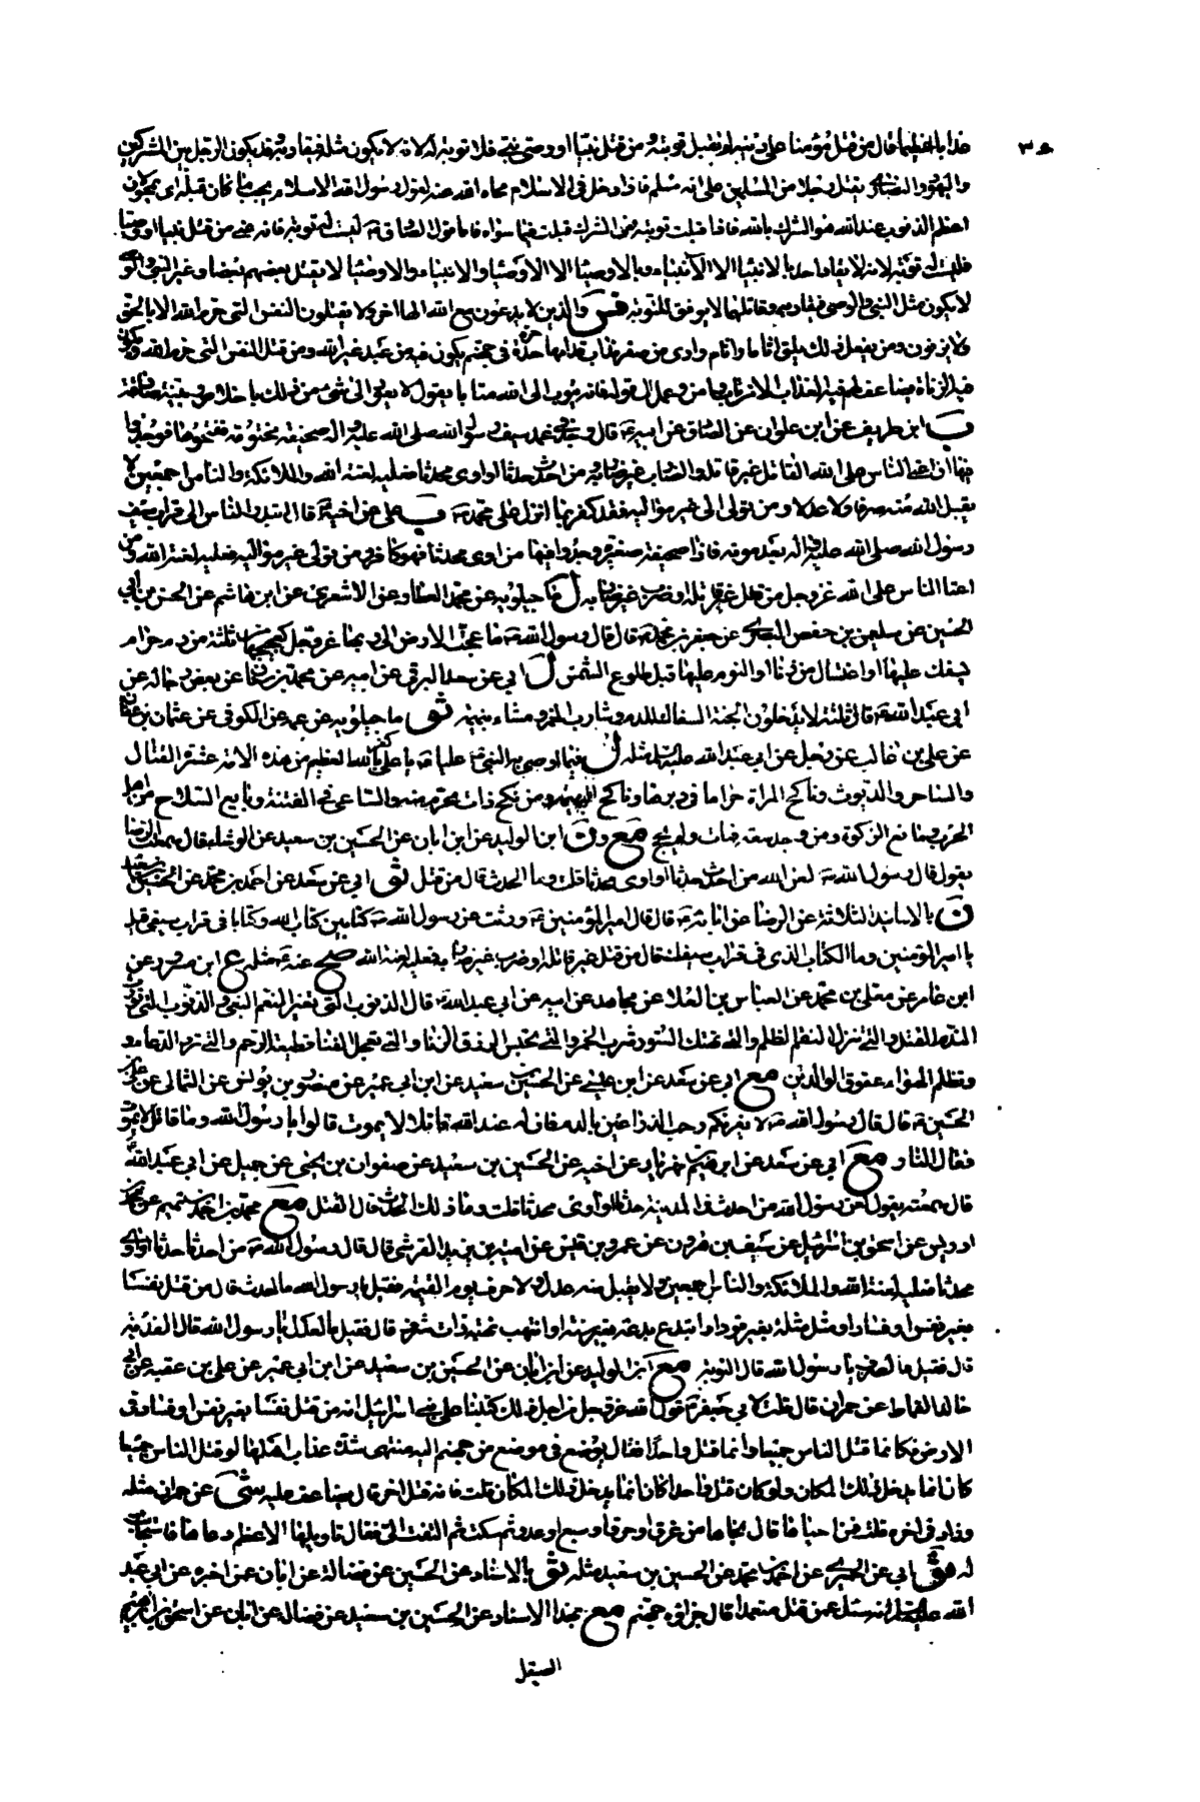 عذابا عظيما قال من قتل مؤمنا على دينه لم تقبل توبته ومن قتل نبيا او وصي نبي فلا توبة له لانه لا يكون مثله فيقاد به وقد يكون الرجل بين المشركين
واليهود والنصارى يقتل رجلا من المسلمين على انه مسلم فاذا دخل في الاسلام محاه الله عنه لقول رسول الله الاسلام يجب ما كان قبله اي يمحو لان
اعظم الذنوب عند الله هو الشرك بالله فاذا قبلت توبته في الشرك قبلت فيما سواه فاما قول الصادق ع ليست له توبة فانه عنى من قتل نبيا او وصيا
فليست له توبة لانه لا يقاد احد بالانبياء الا الانبياء وبالاوصياء الا الاوصياء والانبياء والاوصياء لا يقتل بعضهم بعضا وغير النبي والوصي
لا يكون مثل النبي والوصي فيقاد به وقاتلهما لا يوفق للتوبة فس والذين لا يدعون مع الله الها اخر ولا يقتلون النفس التي حرم الله الا بالحق
ولا يزنون ومن يفعل ذلك يلق اثاما واثام وادي من صفر مذاب قدامها حرة في جهنم يكون فيه من عبد غير الله ومن قتل النفس التي حرم الله ويكون
فيه الزناة يضاعف لهم فيه العذاب الا من تاب وامن وعمل الى قوله فانه يتوب الى الله متابا يقول لا يعود الى شيء من ذلك باخلاص ونية صادقة
ب ابن طريف عن ابن علوان عن الصادق عن ابيه ع قال وجد في غمد سيف رسول الله صلى الله عليه واله صحيفة مختومة ففتحوها فوجدوا
فيها ان اعتى الناس على الله القاتل غير قاتله والضارب غير ضاربه ومن احدث حدثا او اوى محدثا فعليه لعنة الله والملائكة والناس اجمعين لا
يقبل الله منه صرفا ولا عدلا ومن تولى الى غير مواليه فقد كفر بما انزل على محمد ص ب علي عن اخيه ع قال ابتدر الناس الى قراب سيف
رسول الله صلى الله عليه واله بعد موته فاذا صحيفة صغيرة وجدوا فيها من اوى محدثا فهو كافر ومن تولى غير مواليه فعليه لعنة الله ومن
اعتا الناس على الله عز وجل من قتل غير قاتله او ضرب غير ضاربه ل ماجيلويه عن محمد العطار عن الاشعري عن ابن هاشم عن الحسن بن ابي
الحسين عن سليمن بن حفص البصري عن جعفر بن محمد ع قال قال رسول الله ص ما عجت الارض الى ربها عز وجل كعجيجها من ثلثة من دم حرام
يسفك عليها او اغتسال من زنا او النوم عليها قبل طلوع الشمس ل ابي عن سعد عن البرقي عن ابيه عن محمد بن سنان عن بعض رجاله عن
ابي عبد الله ع قال ثلثة لا يدخلون الجنة السفاك للدم وشارب الخمر ومشاء بنميمة ثو ماجيلويه عن عمه عن الكوفي عن عثمان بن عفان
عن علي بن غالب عن رجل عن ابي عبد الله عليه السلام مثله ل فيما اوصى به النبي ص عليا ع يا علي كفر بالله العظيم من هذه الامة عشرة القتال
والساحر والديوث وناكح المراة حراما في دبرها وناكح البهيمة ومن نكح ذات محرم منه والساعي في الفتنة وبايع السلاح من اهل
الحرب ومانع الزكوة ومن وجد سعة فمات ولم يحج مع ون ابن الوليد عن ابن ابان عن الحسين بن سعيد عن الوشاء قال سمعت الرضا
يقول قال رسول الله ص لعن الله من احدث حدثا او اوى محدثا قلت وما الحدث قال من قتل ثو ابي عن سعد عن احمد بن محمد عن الحسين بن سعيد
ن بالاسانيد الثلاثة عن الرضا عن ابائه ع قال قال امير المؤمنين ع ورثت عن رسول الله ص كتابين كتاب الله وكتابا في قراب سيفي قيل
يا امير المؤمنين وما الكتاب الذي في قراب سيفك قال من قتل غير قاتله او ضرب غير ضاربه فعليه لعنة الله صح عنه ع مثله ع ابن مسرور عن
ابن عامر عن معلى بن محمد عن العباس بن العلا عن مجاهد عن ابيه عن ابي عبد الله ع قال الذنوب التي تغير النعم البغي والذنوب التي تورث
الندم القتل والتي تنزل النقم الظلم والتي تهتك الستور شرب الخمر والتي تحبس الرزق الزنا والتي تعجل الفنا قطيعة الرحم والتي ترد الدعاء و
وتظلم الهواء عقوق الوالدين مع ابي عن سعد عن ابن عيسى عن الحسين بن سعيد عن ابن ابي عمير عن منصور بن يونس عن الثمالي عن علي بن
الحسين ع قال قال رسول الله ص لا يغرنكم رحب الذراعين بالدم فان له عند الله قاتلا لا يموت قالوا يا رسول الله وما قاتل لا يموت
فقال النار مع ابي عن سعد عن ابراهيم بن مهزيار عن اخيه عن الحسين بن سعيد عن صفوان بن يحيى عن جميل عن ابي عبد الله ع
قال سمعته يقول لعن رسول الله من احدث في المدينة حدثا او اوى محدثا قلت وما ذلك الحدث قال القتل مع محمد بن احمد بن تميم عن محمد بن
ادريس عن اسحق بن اسرائيل عن سيف بن هرون عن عمرو بن قيس عن امية بن يزيد القرشي قال قال رسول الله ص من احدث حدثا او اوى
محدثا فعليه لعنة الله والملائكة والناس اجمعين ولا يقبل منه عدل ولا صرف يوم القيمة فقيل يا رسول الله ما الحدث قال من قتل نفسا
بغير نفس او فساد او مثل مثلة بغير قود او ابتدع بدعة بغير سنة او انتهب نهبة ذات شرف قال فقيل ما العدل يا رسول الله قال الفدية
قال فقيل ما الصرف يا رسول الله قال التوبة مع ابن الوليد عن ابن ابان عن الحسين بن سعيد عن ابن ابي عمير عن علي بن عقبة عن ابي
خالد القماط عن حمران قال قلت لابي جعفر ع قول الله عز وجل من اجل ذلك كتبنا على بني اسرائيل انه من قتل نفسا بغير نفس او فساد في
الارض فكانما قتل الناس جميعا وانما قتل واحدا فقال يوضع في موضع من جهنم اليه منتهى شدة عذاب اهلها لو قتل الناس جميعا
كان انما يدخل ذلك المكان ولو كان قتل واحدا كان انما يدخل ذلك المكان قلت فانه قتل اخر قال يضاعف عليه شى عن حمران مثله
وزاد في اخره قلت فمن احياها قال نجاها من غرق او حرق او سبع او عدو ثم سكت ثم التفت الي فقال تاويلها الاعظم دعاها فاستجابت
له ثو ابي عن الحميري عن احمد بن محمد عن الحسين بن سعيد مثله ثو بالاسناد عن الحسين عن فضالة عن ابان عمن اخبره عن ابي عبد
الله عليه السلام انه سئل عمن قتل متعمدا قال جزاؤه جهنم مع بهذا الاسناد عن الحسين بن سعيد عن فضالة عن ابان عن اسحق بن ابراهيم
الصيقل